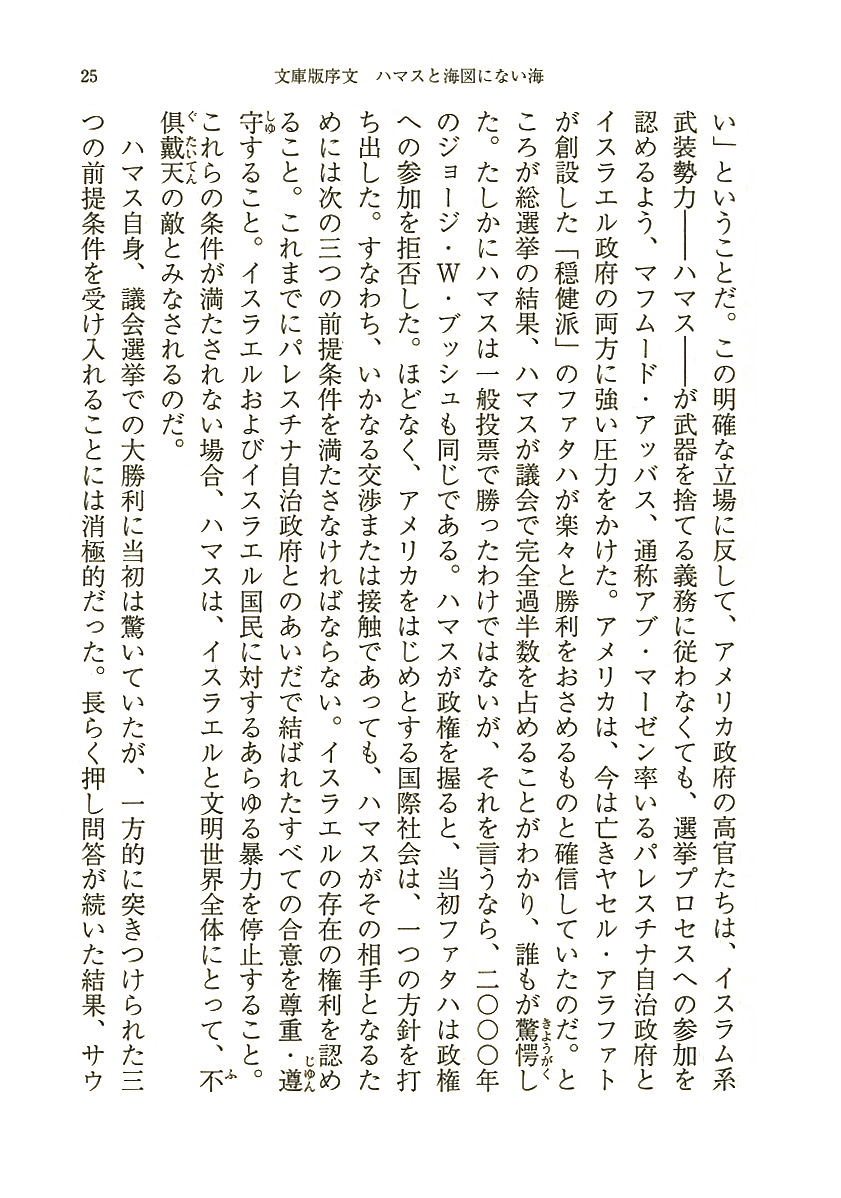 25
文庫版序文　ハマスと海図にない海
い」ということだ。この明確な立場に反して、アメリカ政府の高官たちは、イスラム系
武装勢力――ハマス――が武器を捨てる義務に従わなくても、選挙プロセスへの参加を
認めるよう、マフムード・アッバス、通称アブ・マーゼン率いるパレスチナ自治政府と
イスラエル政府の両方に強い圧力をかけた。アメリカは、今は亡きヤセル・アラファト
が創設した「穏健派」のファタハが楽々と勝利をおさめるものと確信していたのだ。と
ころが総選挙の結果、ハマスが議会で完全過半数を占めることがわかり、誰もが驚愕し
た。たしかにハマスは一般投票で勝ったわけではないが、それを言うなら、二〇〇〇年
のジョージ・W・ブッシュも同じである。ハマスが政権を握ると、当初ファタハは政権
への参加を拒否した。ほどなく、アメリカをはじめとする国際社会は、一つの方針を打
ち出した。すなわち、いかなる交渉または接触であっても、ハマスがその相手となるた
めには次の三つの前提条件を満たさなければならない。イスラエルの存在の権利を認め
ること。これまでにパレスチナ自治政府とのあいだで結ばれたすべての合意を尊重・遵
守すること。イスラエルおよびイスラエル国民に対するあらゆる暴力を停止すること。
これらの条件が満たされない場合、ハマスは、イスラエルと文明世界全体にとって、不
倶戴天の敵とみなされるのだ。
　ハマス自身、議会選挙での大勝利に当初は驚いていたが、一方的に突きつけられた三
つの前提条件を受け入れることには消極的だった。長らく押し問答が続いた結果、サウ